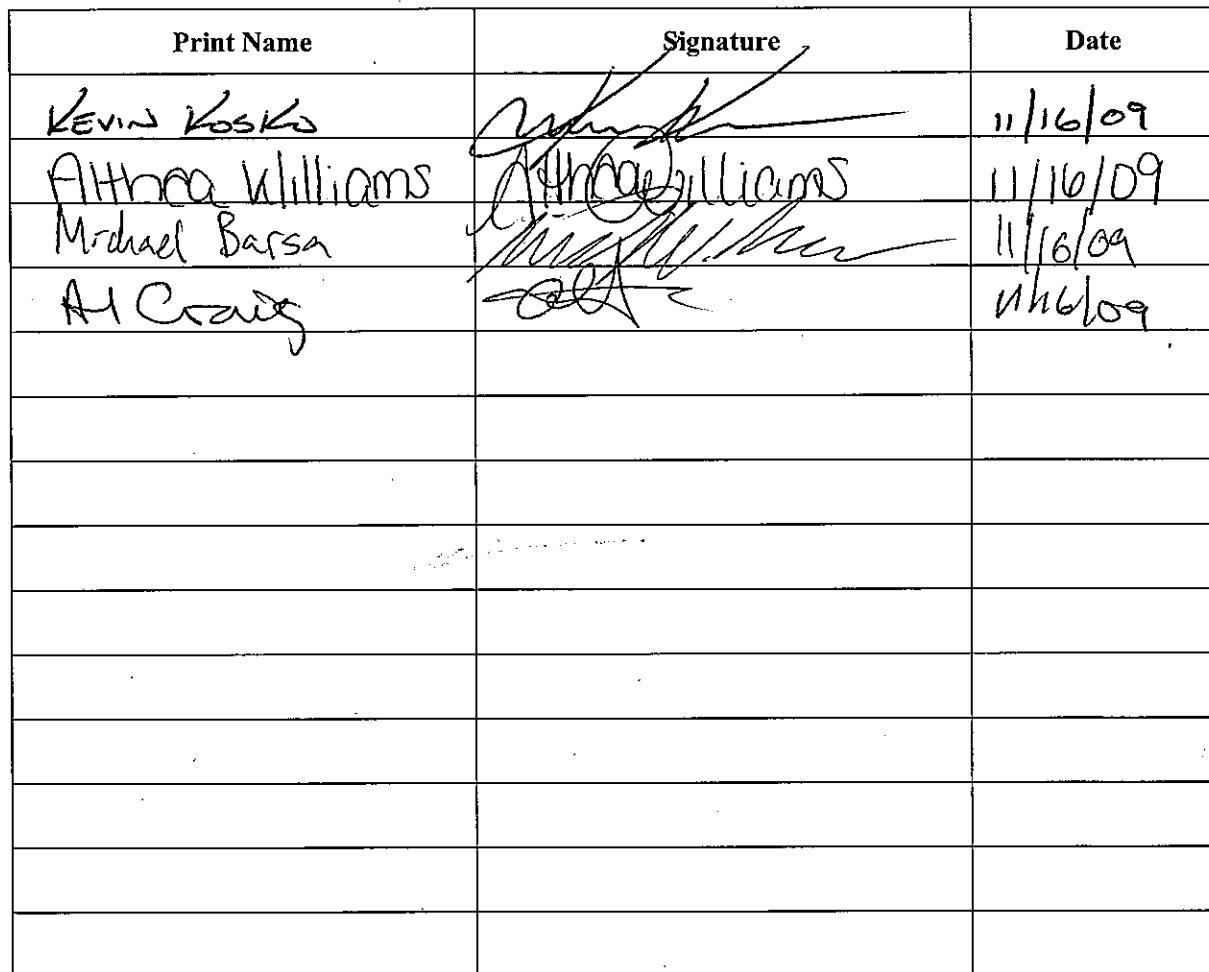 Print Name Signature Date
Kevin Kosko 11/16/09
Althea Williams Althea Williams 11/16/09
Michael Barsa 11/16/09
Al Craig 11/16/09